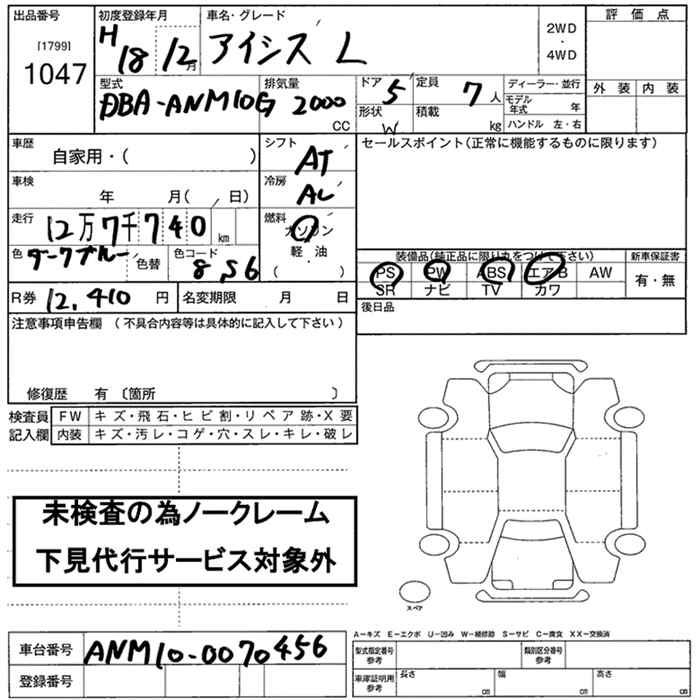 出品番号 初度登録年月 車名・グレード 評価点
[1799] H18 12月 アイシス L 2WD ・ 4WD
1047
型式 排気量 ドア 5 定員 7人 ディーラー・並行 外装 内装
DBA-ANM10G 2000 CC 形状 W 積載 kg モデル年式 年
ハンドル 左・右
車歴 シフト セールスポイント(正常に機能するものに限ります)
自家用・( ) AT
車検 年 月( 日) 冷房 AC
走行 12万7千740 km 燃料 ガソリン
色 ダークブルー 色替 色コード 8S6 軽・油
( )
装備品(純正品に限り丸をつけて下さい) 新車保証書
PS PW ABS エアB AW 有・無
SR ナビ TV カワ
R券 12,410 円 名変期限 月 日 後日品
注意事項申告欄 (不具合内容等は具体的に記入して下さい)
修復歴 有 〔箇所 〕
検査員 FW キズ・飛石・ヒビ割・リペア跡・X要
記入欄 内装 キズ・汚レ・コゲ・穴・スレ・キレ・破レ
未検査の為ノークレーム
下見代行サービス対象外
スペア
A-キズ E-エクボ U-凹み W-補修跡 S-サビ C-腐食 XX-交換済
車台番号 ANM10-0070456 型式指定番号 参考 類別区分番号 参考
登録番号 車庫証明用 参考 長さ cm 幅 cm 高さ cm